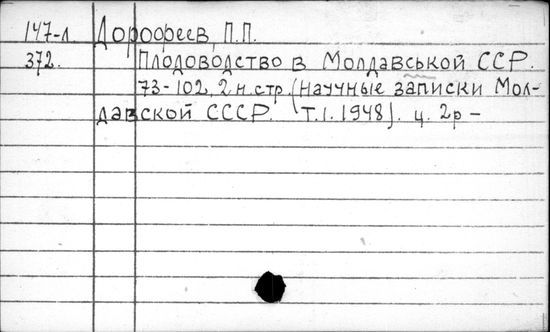 147-л Дорофеев, П.П.
372. Плодоводство в Молдавськой ССР.
73-102, 2 н. стр. (Научные записки Мол-
давской СССР. Т.1. 1948). ц. 2р -